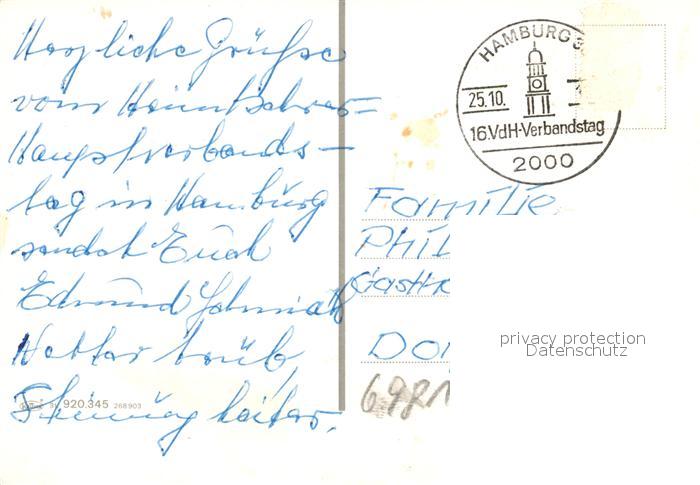 Herzliche Grüße
vom Heimkehrer-
Hauptverbands-
tag in Hamburg
sendet Euch
Edmund Schmidt
Wetter trüb,
Stimmung heiter.
920.345 268903
HAMBURG 3
25.10.
16.VdH-Verbandstag
2000
Familie
Phil
Gasth
Do
6981
privacy protection
Datenschutz